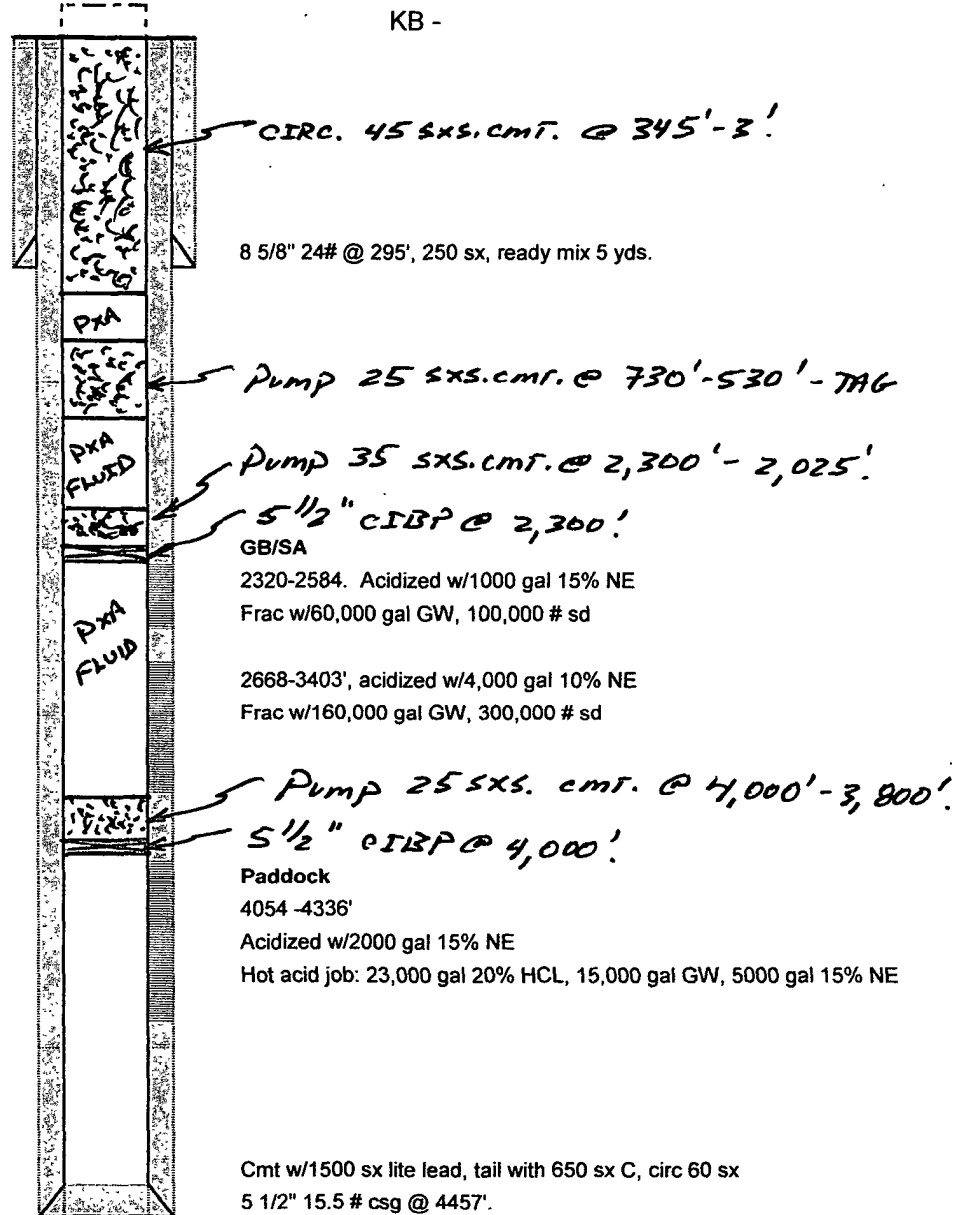 KB -
CIRC. 45 SXS. CMT. @ 345'-3'.
8 5/8" 24# @ 295', 250 sx, ready mix 5 yds.
PXA
Pump 25 SXS. CMT. @ 730'-530'-TAG
PXA
FLUID
Pump 35 SXS. CMT. @ 2,300'-2,025'.
5 1/2" CIBP @ 2,300'.
GB/SA
2320-2584. Acidized w/1000 gal 15% NE
Frac w/60,000 gal GW, 100,000 # sd
PXA
FLUID
2668-3403', acidized w/4,000 gal 10% NE
Frac w/160,000 gal GW, 300,000 # sd
Pump 25 SXS. CMT. @ 4,000'-3,800'.
5 1/2" CIBP @ 4,000'.
Paddock
4054 -4336'
Acidized w/2000 gal 15% NE
Hot acid job: 23,000 gal 20% HCL, 15,000 gal GW, 5000 gal 15% NE
Cmt w/1500 sx lite lead, tail with 650 sx C, circ 60 sx
5 1/2" 15.5 # csg @ 4457'.